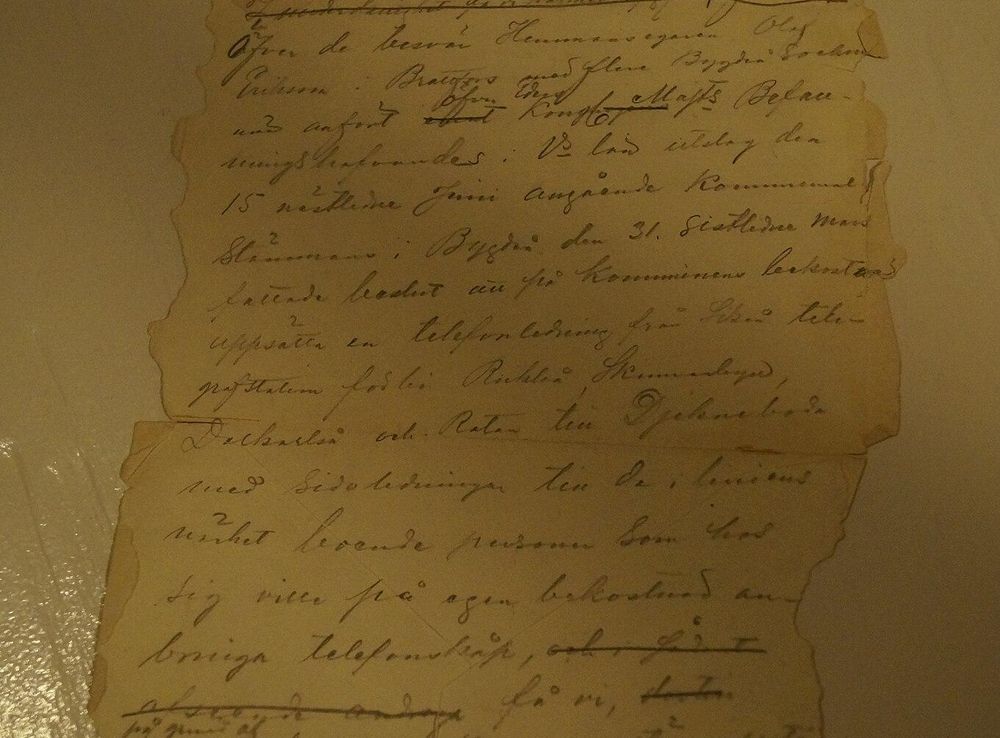 öfver de besvär Hemmansegaren Olof
Eriksson i Brattfors med flere Bygdeå Sockn
öfver Eders
und anfört Kongl. Majts Befall-
ningshafvandes i Vb län utslag den
15 nästledne Juni angående Kommunal
Stämmans i Bygdeå den 31. sistledne Mars
fattade beslut att på Kommunens bekostnad
uppsätta en telefonledning från Sikeå tele-
grafstation förbi Rickleå,
Dalkarlså och Ratan till Djekneboda
med Sidoledningar till de i liniens
närhet boende personer som hos
sig ville på egen bekostnad an-
bringa telefonskåp, och i följd t
afseende andraga få vi,
på grund af